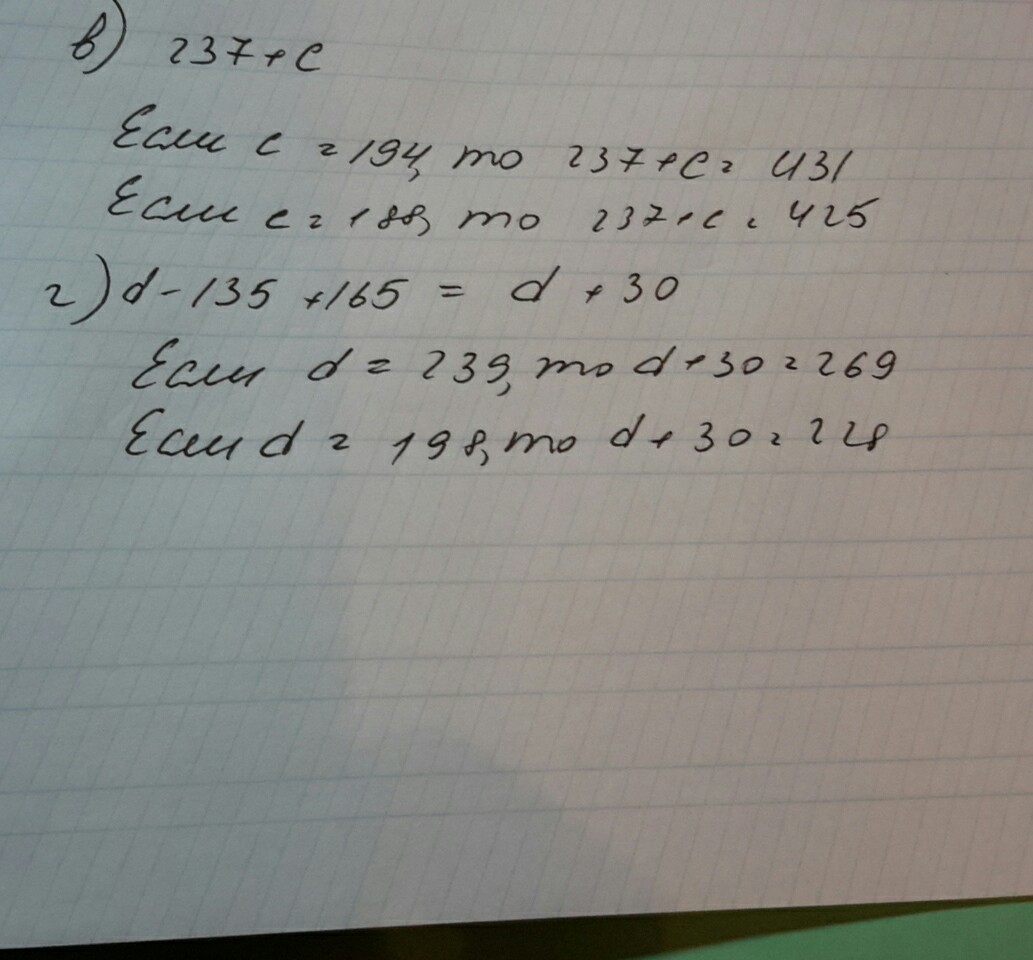 в) 237+c
Если c = 194, то 237+c = 431
Если c = 188, то 237+c = 425
г) d-135 +165 = d + 30
Если d = 239, то d+30=269
Если d = 198, то d+30=228